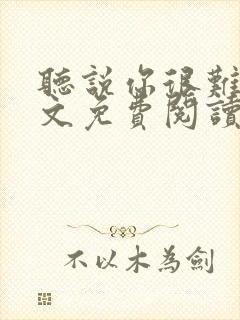 聽說你很難
文免費閱讀
不以木為劍